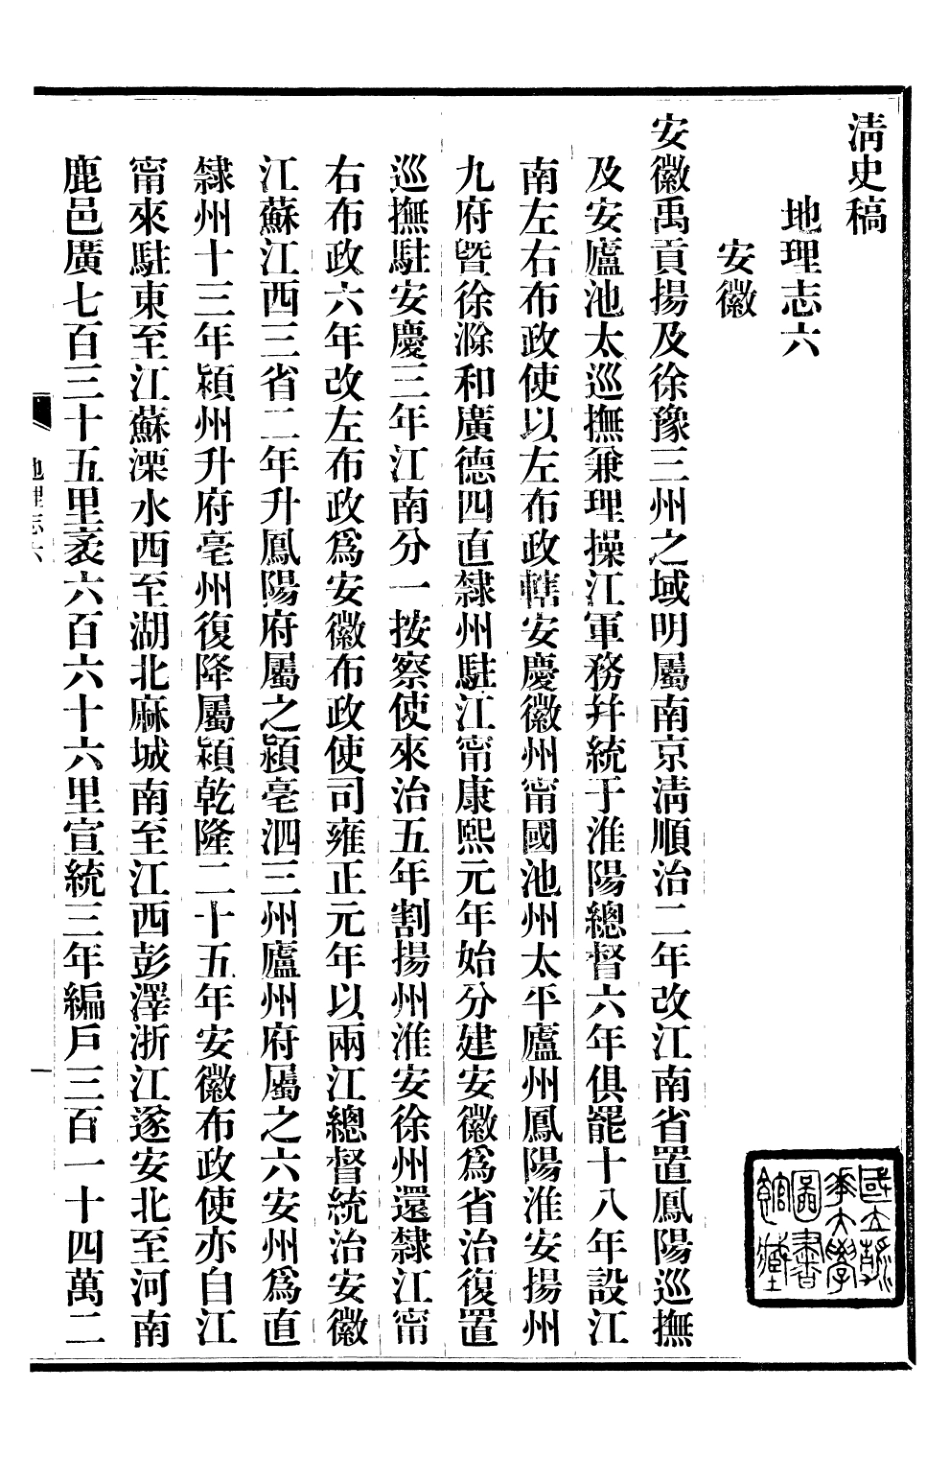 清史稿
地理志六
安徽
安徽禹貢揚及徐豫三州之域明屬南京清順治二年改江南省置鳳陽巡撫
及安廬池太巡撫兼理操江軍務幷統于淮陽總督六年俱罷十八年設江
南左右布政使以左布政轄安慶徽州甯國池州太平廬州鳳陽淮安揚州
九府暨徐滁和廣德四直隸州駐江甯康熙元年始分建安徽爲省治復置
巡撫駐安慶三年江南分一按察使來治五年割揚州淮安徐州還隸江甯
右布政六年改左布政爲安徽布政使司雍正元年以兩江總督統治安徽
江蘇江西三省二年升鳳陽府屬之潁亳泗三州廬州府屬之六安州爲直
隸州十三年潁州升府亳州復降屬潁乾隆二十五年安徽布政使亦自江
甯來駐東至江蘇溧水西至湖北麻城南至江西彭澤浙江遂安北至河南
鹿邑廣七百三十五里袤六百六十六里宣統三年編戶三百一十四萬二
地理志六
一
國立清華大學圖書館藏